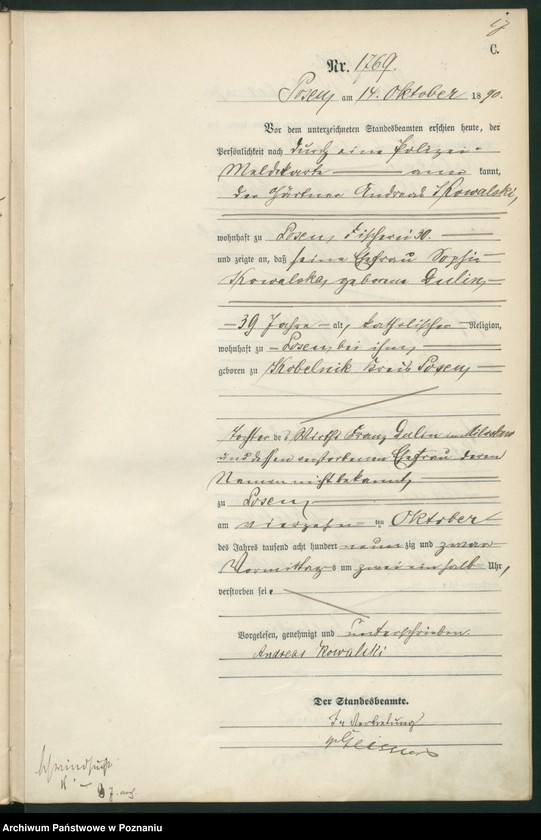 C.
Nr. 1769.
Posen, am 14. Oktober 1890.
Vor dem unterzeichneten Standesbeamten erschien heute, der
Persönlichkeit nach durch eine Polizei-
Meldekarte kannt,
der Gärtner Andreas Kowalski,
wohnhaft zu Posen, Fischerei 30.
und zeigte an, daß seine Ehefrau Sophie
Kowalska, geborene Dulin,
39 Jahre alt, katholischer Religion,
wohnhaft zu Posen, bei ihm,
geboren zu Kobelnik Kreis Posen,
Tochter des Wirths Franz Dulin
und dessen verstorbenen Ehefrau deren
Namen nicht bekannt,
zu Posen,
am vierzehnten Oktober
des Jahres tausend acht hundert neunzig und zwar
Vormittags um zwei ein halb Uhr,
verstorben sei.
Vorgelesen, genehmigt und unterschrieben.
Andreas Kowalski
Der Standesbeamte.
In Vertretung
Schwindsucht
Archiwum Państwowe w Poznaniu